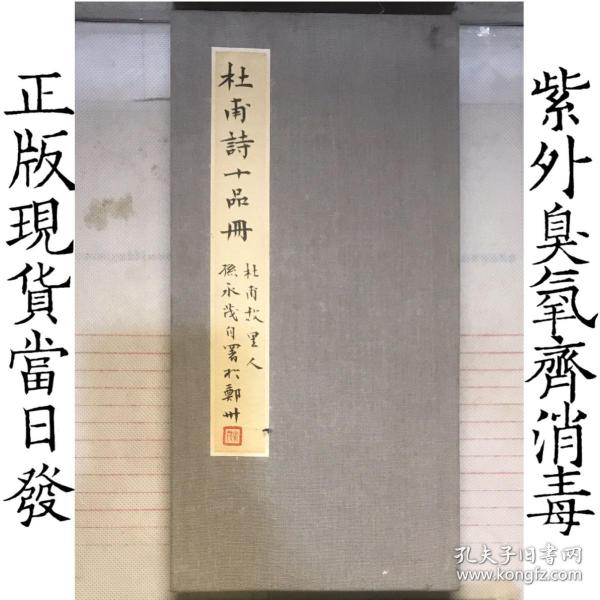 正版現貨當日發
杜甫詩十品冊
杜甫故里人
孫永茂自署於鄭州
紫外臭氧齊消毒
孔夫子旧书网
www.kongfz.com